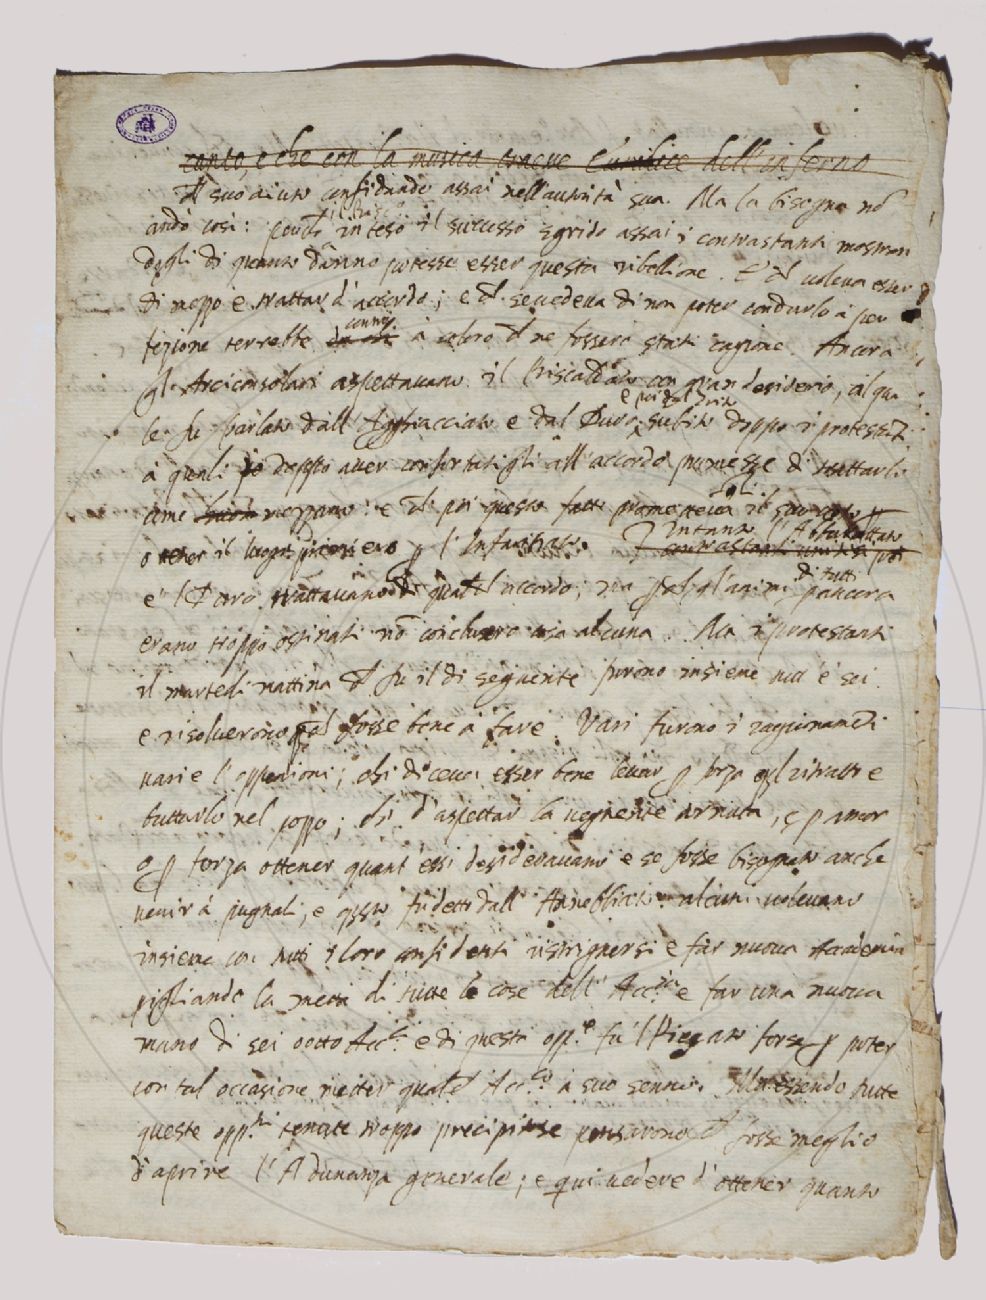 canto, e che con la musica trasse Euridice dell'inferno
Il suo aiuto confidando assai nell'autorità sua. Ma la bisogna nõ
andò così: inteso il successo sgridò assai i contrastanti mostran
dogli di quanto dãnno potesse esser questa ribellione. voleva esser
di mezzo e trattar d'accordo; e se vedeva di non poter condurlo à per
fezione terrebbe conto à coloro ne fossero stati cagione. Ancora
gl'Arciconsolari aspettavano il Riscaldato con gran desiderio, al qua
le fu parlato dall'Agghiacciato e dal Duro, subito doppo i protestãti
à quali doppo aver confortatigli all'accordo promesse di trattarlo
come mezzano: e poi questo fatto prometteva il suo
ottener il luogo primiero l'Infuriato. Intanto
e 'l Duro trattavano di qualche accordo; ma gl'animi di tutti ancora
erano troppo ostinati nõ conclusero cosa alcuna. Ma i protestanti
il martedì mattina fu il dì seguente furono insieme
e risolverono fosse bene à fare. Vari furono i ragionamẽti
vari e l'oppenioni; chi diceva esser bene levar forza ritratto e
buttarlo nel pozzo; chi d'aspettar la vegnente tornata, e p amor
o p forza ottener quant'essi desideravano e se fosse bisognato anche
venir à pugnali, e fu detto dall'Annebbiato. alcuni volevano
insieme con tutti i loro confidenti ristrignersi e far nuova Accademia
pigliando la metà di tutte le cose dell'Acc.ia e far una nuova
mano di sei o otto Acc.ci e di questa opp.e fu 'l Piegato forse p poter
con tal occasione metter qualche Acc.co à suo senno. Ma essendo tutte
queste opp.ni tenute troppo precipitose pensarono che fosse meglio
d'aprire l'Adunanza generale; e qui vedere d'ottener quanto